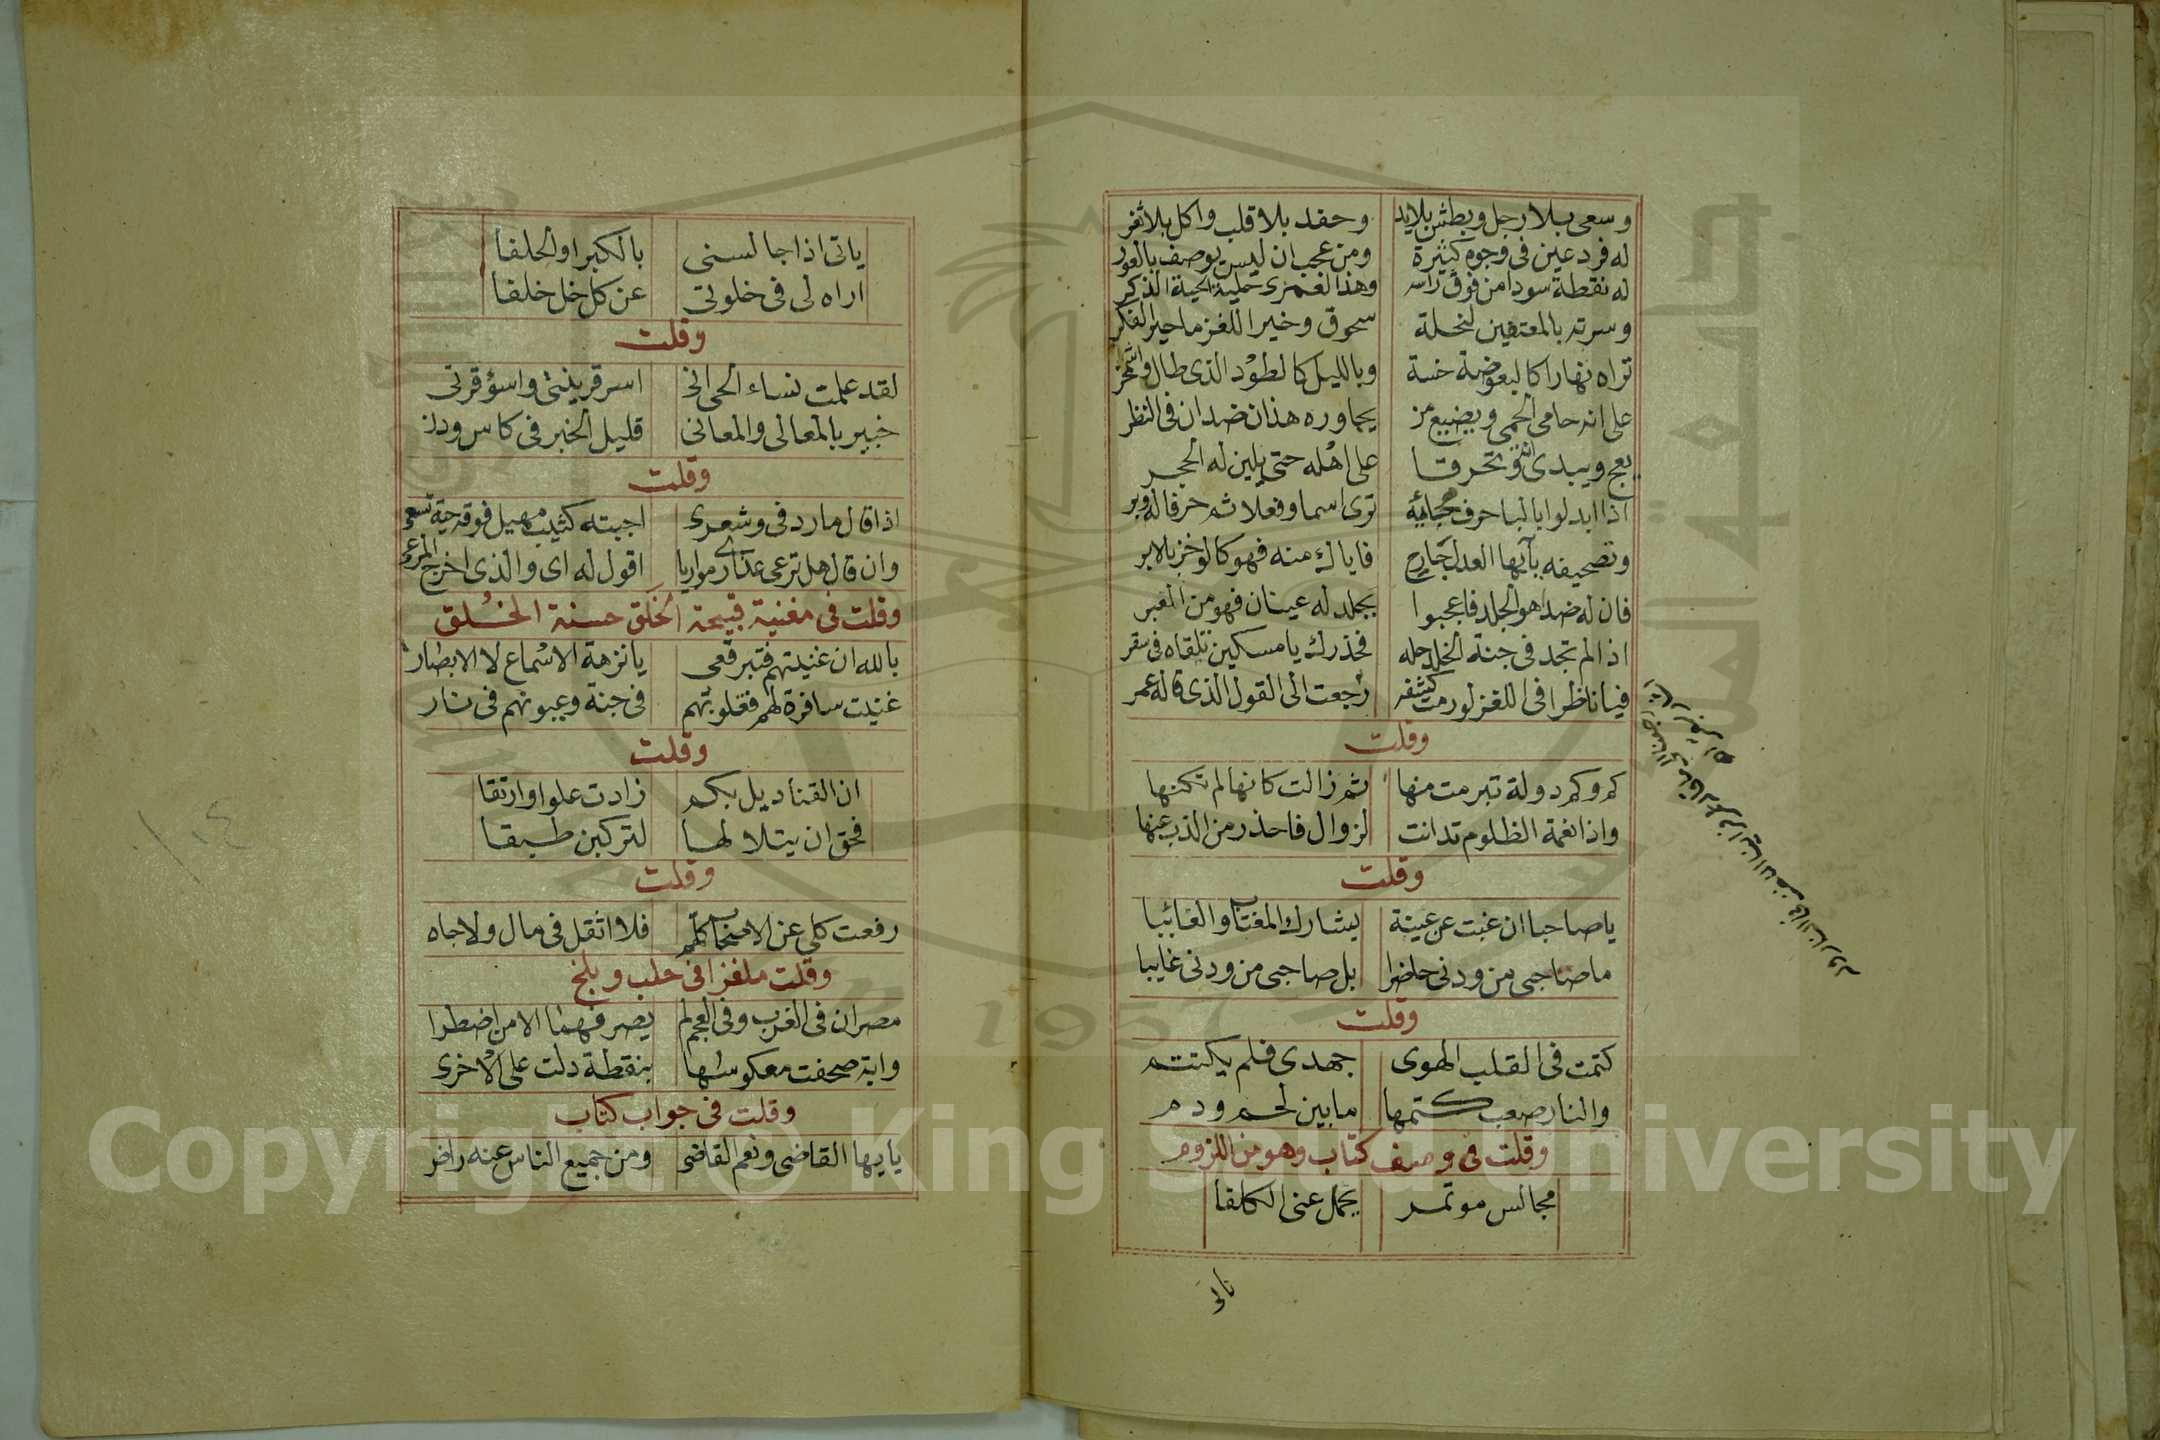 وسعى بلا رجل وبطش بلا يد وحقد بلا قلب واكل بلا ثغر
له فرد عين فى وجوه كثيرة ومن عجب ان ليس يوصف بالعور
له نقطة سودا من فوق راسه وهذا لعمرى حلية الحية الذكر
وسرته بالمعتفين لنخلة سحوق وخير اللغز ما حير الفكر
تراه نهارا كالبعوضة خسة وبالليل كالطود الذى طال واشمخر
على انه حامى الحمى ويضيع من يجاوره هذان ضدان فى النظر
يعج ويبدى انة وتحرقا على اهله حتى يلين له الحجر
اذا ابدلوا بالبا حرف هجائه ترى اسما وفعلا ثم حرفا له وبر
وتصحيفه يا ايها العدل جارح فاياك منه فهو كالوخز بالابر
فان له ضدا هو الجلد فاعجبوا بجلد له عينان فهو من العبر
اذا لم تجد فى جنة الخلد حله فحذرك يا مسكين تلقاه فى سقر
فيا ناظرا فى اللغز لو رمت كشفه رجعت الى القول الذى قاله عمر
وقلت
كم وكم دولة تبرمت منها ثم زالت كانها لم تكنها
واذا نعمة الظلوم تدانت لزوال فاحذر من الذب عنها
وقلت
يا صاحبا ان غبت عن عينه يشارك المغتاب والغائبا
ما صاحبى من ودنى حاضرا بل صاحبى من ودنى غايبا
وقلت
كتمت فى القلب الهوى جهدى فلم يكتتم
والنار صعب كتمها ما بين لحم ودم
وقلت فى وصف كتاب وهو من اللزوم
مجالس موتمر يحمل عنى الكلفا
ياتى
ياتى اذا جالسنى بالكبرا والحلفا
اراه لى فى خلوتى عن كل خل خلفا
وقلت
لقد علمت نساء الحى انى اسر قرينتى واسؤ قرنى
خبير بالمعالى والمعانى قليل الخبر فى كاس ودن
وقلت
اذا قال ما ردفى وشعرى اجبته كثيب مهيل فوقه حية تسعى
وان قال هل ترعى عذارى مواريا اقول له اى والذى اخرج المرعى
وقلت فى مغنية قبيحة الخلق حسنة الخلق
بالله ان غنيتهم فتبرقعى يا نزهة الاسماع لا الابصار
غنيت سافرة لهم فقلوبهم فى جنة وعيونهم فى نار
وقلت
ان القناديل بكم زادت علوا وارتقا
فحق ان يتلا لها لتركبن طبقا
وقلت
رفعت كلى عن الاصحاب كلهم فلا اثقل فى مال ولا جاه
وقلت ملغزا فى حلب وبلخ
مصران فى الغرب وفى العجم لم يصرفهما الا من اضطرا
واية صحفت معكوسها بنقطة دلت على الاخرى
وقلت فى جواب كتاب
يا ايها القاضى ونعم القاضى ومن جميع الناس عنه راض
Copyright © King Saud University
1957